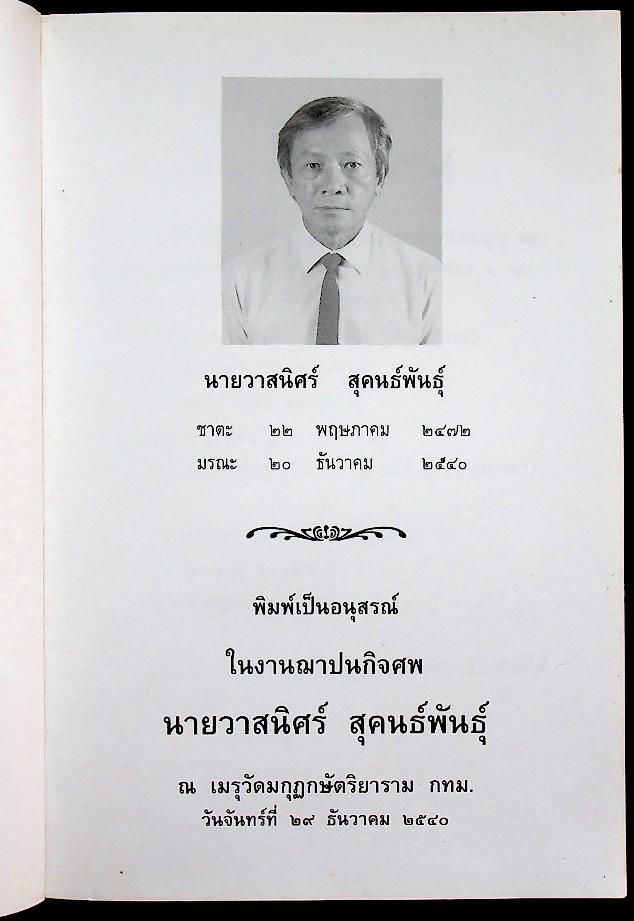 นายวาสนิศร์ สุคนธ์พันธุ์
ชาตะ ๒๒ พฤษภาคม ๒๔๗๒
มรณะ ๒๐ ธันวาคม ๒๕๔๐
พิมพ์เป็นอนุสรณ์
ในงานฌาปนกิจศพ
นายวาสนิศร์ สุคนธ์พันธุ์
ณ เมรุวัดมกุฏกษัตริยาราม กทม.
วันจันทร์ที่ ๒๙ ธันวาคม ๒๕๔๐